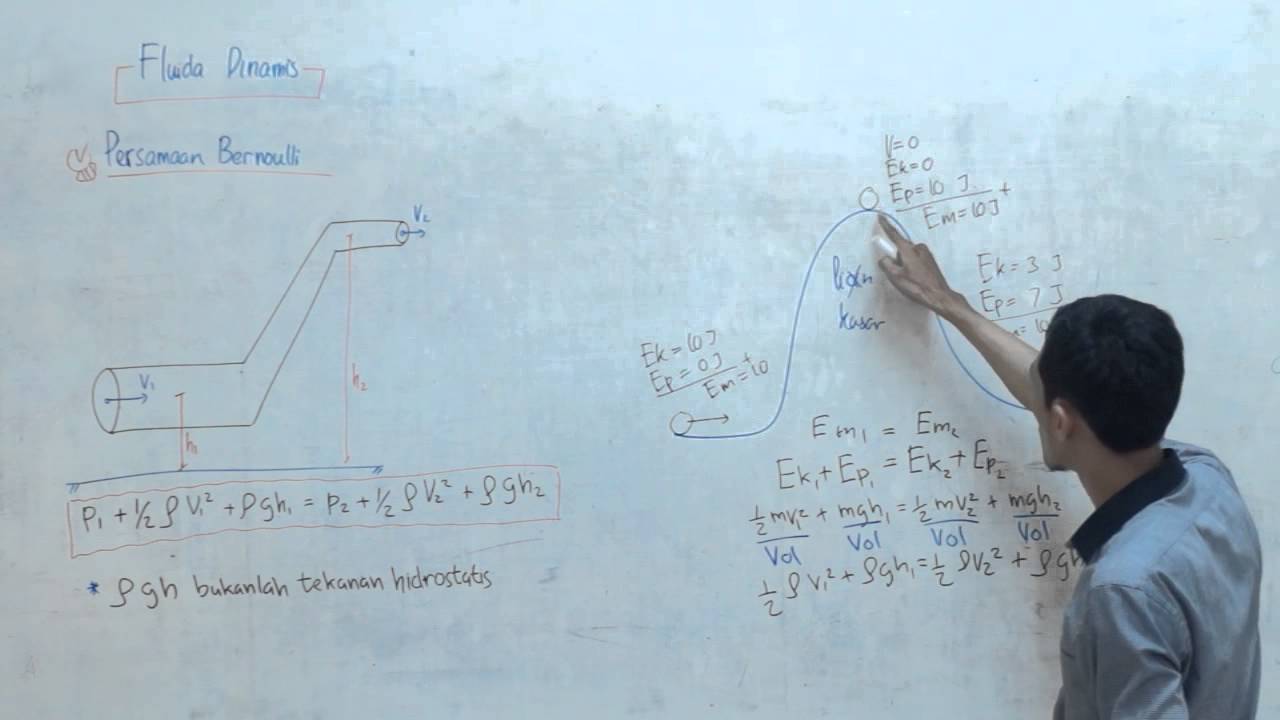 Fluida Dinamis
Persamaan Bernoulli
V₂
V₁
h₂
h₁
P₁ + ½ ρ V₁² + ρgh₁ = P₂ + ½ ρ V₂² + ρgh₂
* ρgh bukanlah tekanan hidrostatis
V=0
Ek=0
Ep=10 J +
Em=10J
licin
kasar
Ek = 3 J
Ep = 7 J
= 10
Ek = 10J
Ep = 0J +
Em = 10
Em₁ = Em₂
Ek₁ + Ep₁ = Ek₂ + Ep₂
½mv₁² + mgh₁ = ½mv₂² + mgh₂
Vol Vol Vol Vol
½ ρ v₁² + ρgh₁ = ½ ρv₂² + ρgh